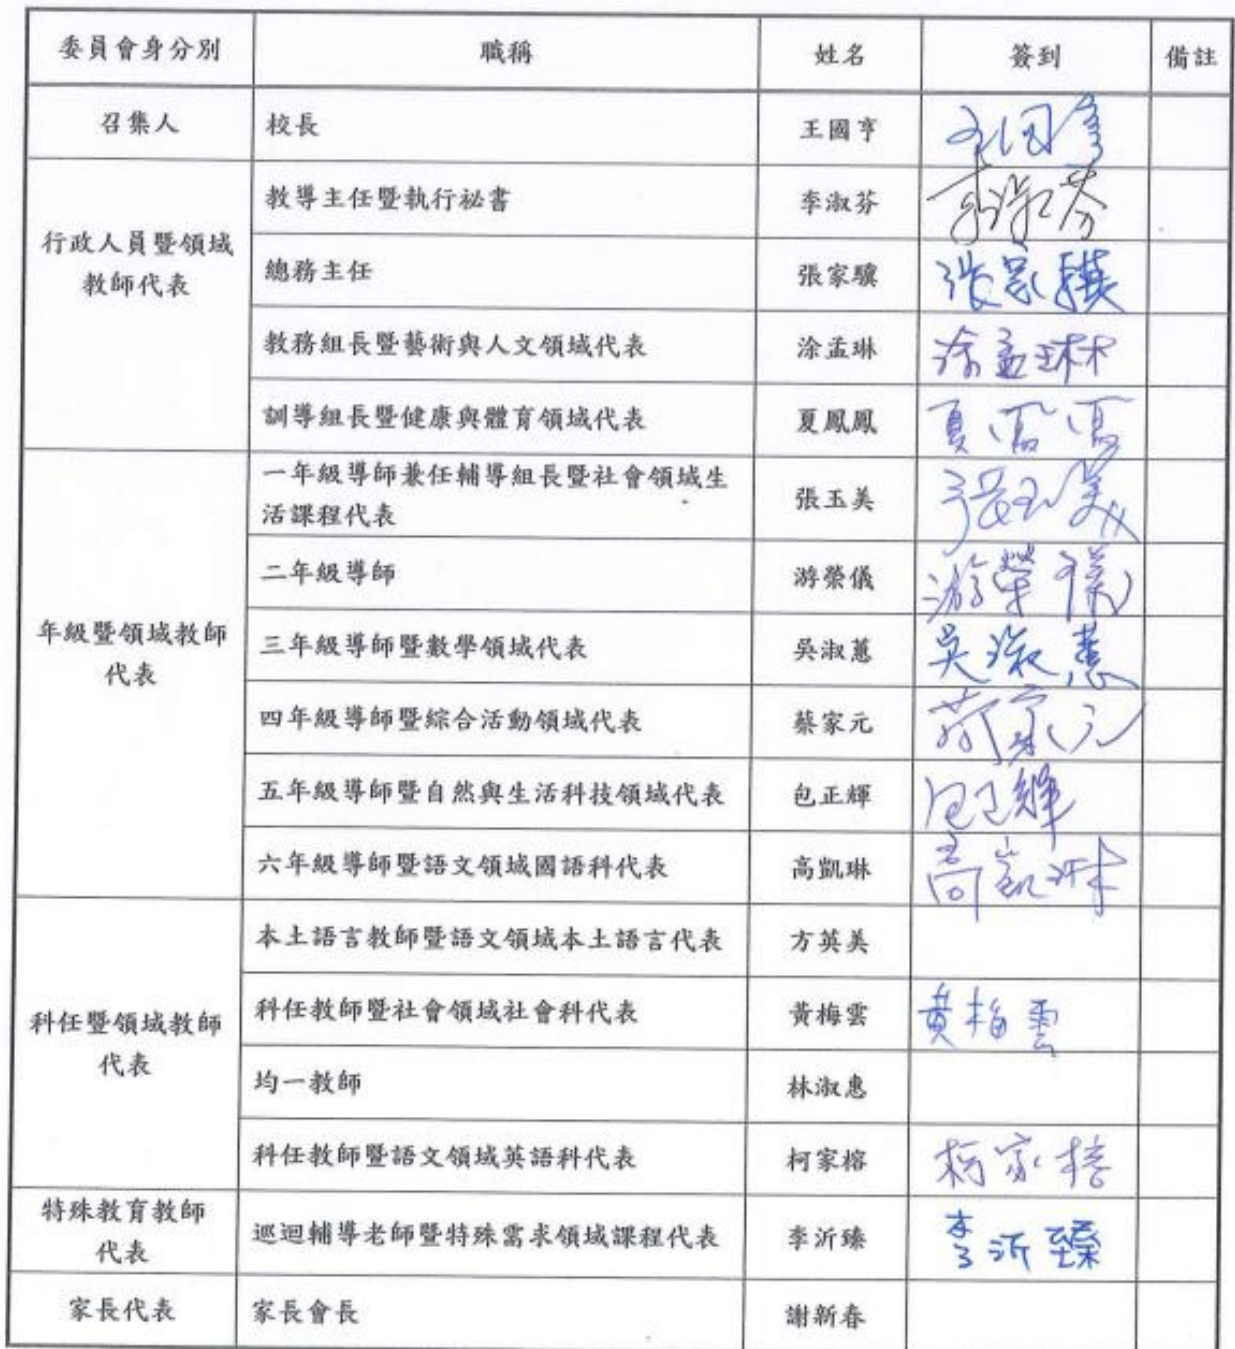 委員會身分別 職稱 姓名 簽到 備註
召集人 校長 王國亨
行政人員暨領域
教師代表
教導主任暨執行祕書 李淑芬
總務主任 張家驥 張家驥
教務組長暨藝術與人文領域代表 涂孟琳 涂孟琳
訓導組長暨健康與體育領域代表 夏鳳鳳
年級暨領域教師
代表
一年級導師兼任輔導組長暨社會領域生
活課程代表
張玉美 張玉美
二年級導師 游榮儀 游榮儀
三年級導師暨數學領域代表 吳淑蕙 吳淑蕙
四年級導師暨綜合活動領域代表 蔡家元 蔡家元
五年級導師暨自然與生活科技領域代表 包正輝 包正輝
六年級導師暨語文領域國語科代表 高凱琳 高凱琳
科任暨領域教師
代表
本土語言教師暨語文領域本土語言代表 方英美
科任教師暨社會領域社會科代表 黃梅雲 黃梅雲
均一教師 林淑惠
科任教師暨語文領域英語科代表 柯家榕 柯家榕
特殊教育教師
代表
巡迴輔導老師暨特殊需求領域課程代表 李沂臻 李沂臻
家長代表 家長會長 謝新春